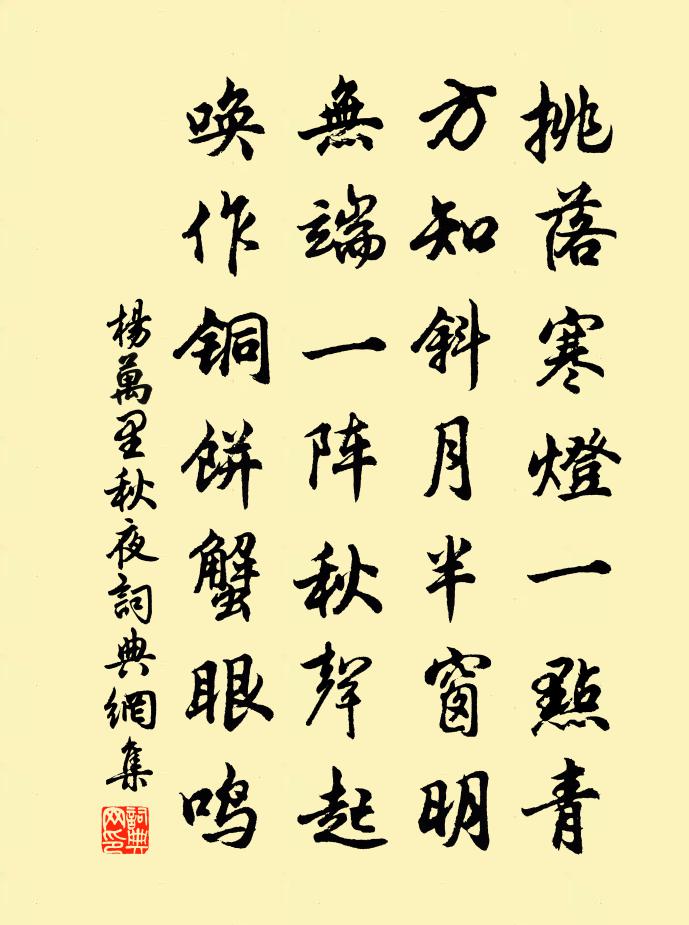 挑落寒燈一點青
方知斜月半窗明
無端一阵秋聲起
唤作铜餅蟹眼鸣
楊萬里秋夜詞典網集
詞典网印